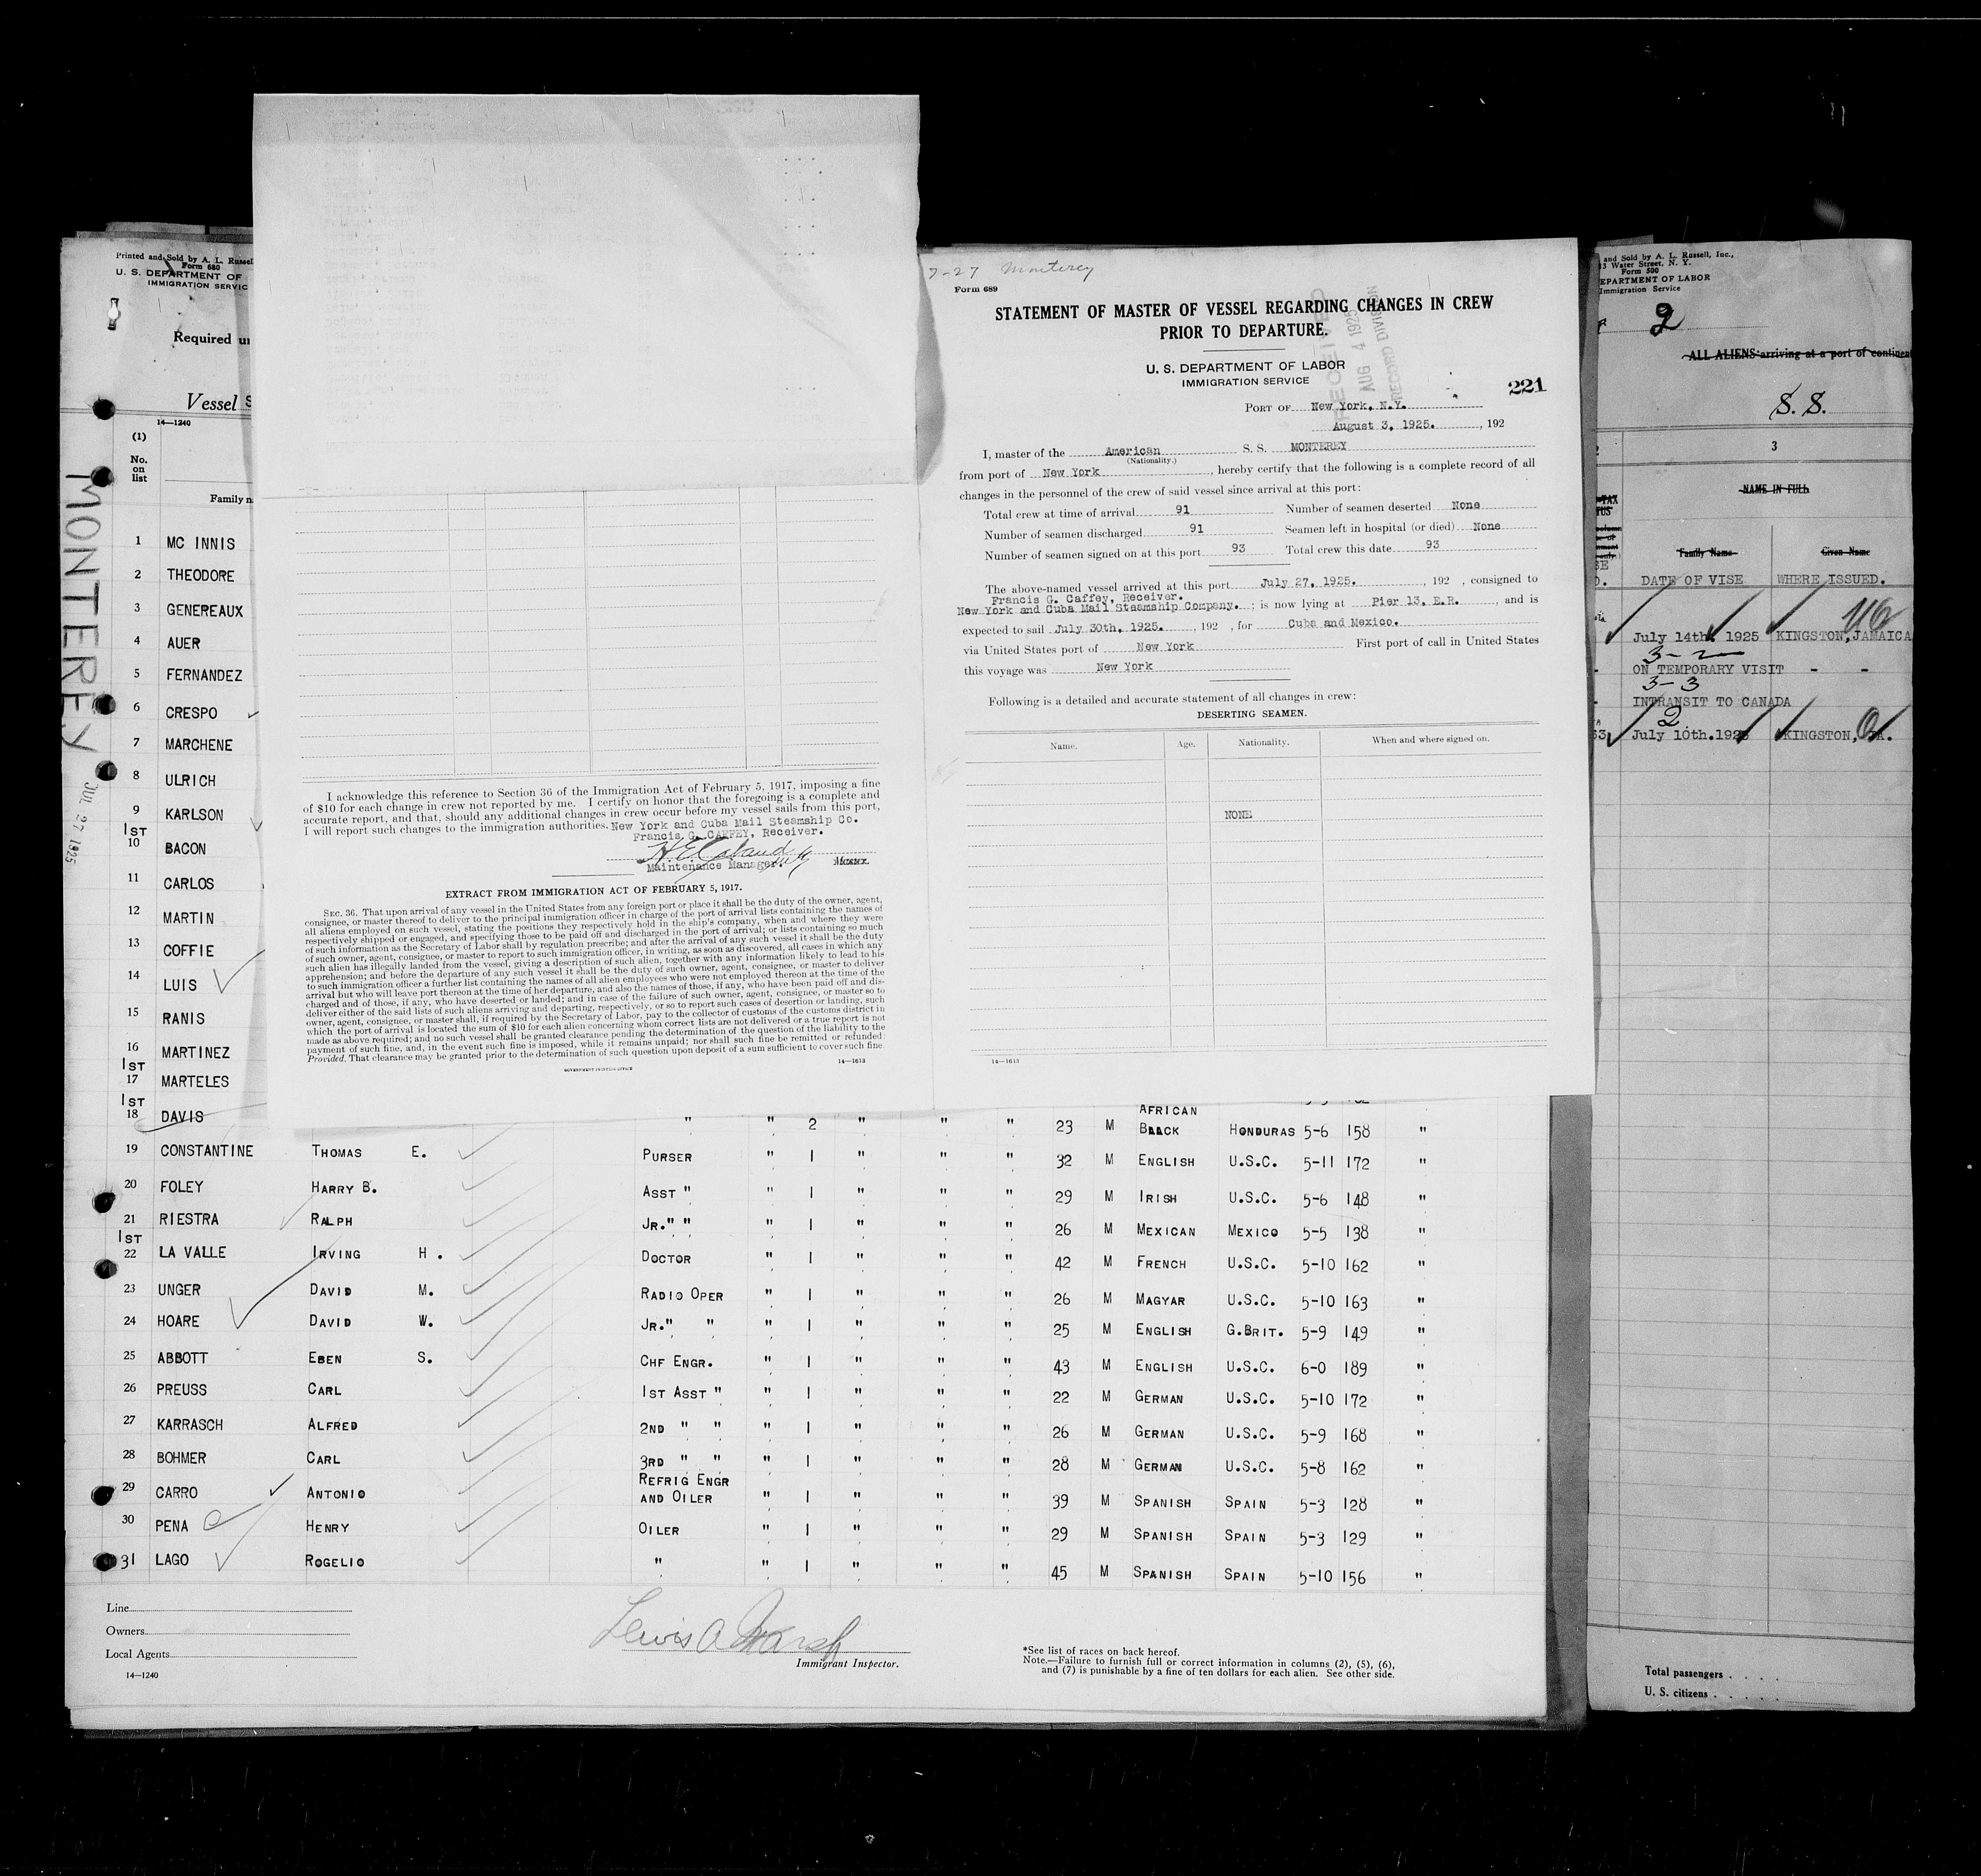 7-27 Monterey
Form 689
STATEMENT OF MASTER OF VESSEL REGARDING CHANGES IN CREW
PRIOR TO DEPARTURE.
U. S. DEPARTMENT OF LABOR
IMMIGRATION SERVICE
RECEIVED
AUG 4 1925
RECORD DIVISION
221
PORT OF New York, N.Y.
August 3, 1925. , 192
I, master of the American S. S. MONTEREY
(Nationality.)
from port of New York , hereby certify that the following is a complete record of all
changes in the personnel of the crew of said vessel since arrival at this port:
Total crew at time of arrival 91 Number of seamen deserted None
Number of seamen discharged 91 Seamen left in hospital (or died) None
Number of seamen signed on at this port 93 Total crew this date 93
The above-named vessel arrived at this port July 27, 1925. , 192 , consigned to
Francis G. Caffey, Receiver.
New York and Cuba Mail Steamship Company. ; is now lying at Pier 13, E.R. , and is
expected to sail July 30th, 1925. , 192 , for Cuba and Mexico.
via United States port of New York First port of call in United States
this voyage was New York
Following is a detailed and accurate statement of all changes in crew:
DESERTING SEAMEN.
Name. Age. Nationality. When and where signed on.
NONE
14—1613
I acknowledge this reference to Section 36 of the Immigration Act of February 5, 1917, imposing a fine
of $10 for each change in crew not reported by me. I certify on honor that the foregoing is a complete and
accurate report, and that, should any additional changes in crew occur before my vessel sails from this port,
I will report such changes to the immigration authorities. New York and Cuba Mail Steamship Co.
Francis G. CAFFEY, Receiver.
Maintenance Manager.
EXTRACT FROM IMMIGRATION ACT OF FEBRUARY 5, 1917.
SEC. 36. That upon arrival of any vessel in the United States from any foreign port or place it shall be the duty of the owner, agent,
consignee, or master thereof to deliver to the principal immigration officer in charge of the port of arrival lists containing the names of
all aliens employed on such vessel, stating the positions they respectively hold in the ship's company, when and where they were
respectively shipped or engaged, and specifying those to be paid off and discharged in the port of arrival; or lists containing so much
of such information as the Secretary of Labor shall by regulation prescribe; and after the arrival of any such vessel it shall be the duty
of such owner, agent, consignee, or master to report to such immigration officer, in writing, as soon as discovered, all cases in which any
such alien has illegally landed from the vessel, giving a description of such alien, together with any information likely to lead to his
apprehension; and before the departure of any such vessel it shall be the duty of such owner, agent, consignee, or master to deliver
to such immigration officer a further list containing the names of all alien employees who were not employed thereon at the time of the
arrival but who will leave port thereon at the time of her departure, and also the names of those, if any, who have been paid off and dis-
charged and of those, if any, who have deserted or landed; and in case of the failure of such owner, agent, consignee, or master so to
deliver either of the said lists of such aliens arriving and departing, respectively, or so to report such cases of desertion or landing, such
owner, agent, consignee, or master shall, if required by the Secretary of Labor, pay to the collector of customs of the customs district in
which the port of arrival is located the sum of $10 for each alien concerning whom correct lists are not delivered or a true report is not
made as above required; and no such vessel shall be granted clearance pending the determination of the question of the liability to the
payment of such fine, and, in the event such fine is imposed, while it remains unpaid; nor shall such fine be remitted or refunded:
Provided, That clearance may be granted prior to the determination of such question upon deposit of a sum sufficient to cover such fine.
14—1613
GOVERNMENT PRINTING OFFICE
Printed and Sold by A. L. Russell
Form 680
U. S. DEPARTMENT OF
IMMIGRATION SERVIC
Required un
Vessel S
14—1240
(1)
No.
on
list
Family n
MONTEREY
JUL 27 1925
1 MC INNIS
2 THEODORE
3 GENEREAUX
4 AUER
5 FERNANDEZ
6 CRESPO
7 MARCHENE
8 ULRICH
9 KARLSON
1ST
10 BACON
11 CARLOS
12 MARTIN
13 COFFIE
14 LUIS
15 RANIS
16 MARTINEZ
1ST
17 MARTELES
1ST
AFRICAN
18 DAVIS " " 2 " " " 23 M BLACK HONDURAS 5-6 158 "
19 CONSTANTINE THOMAS E. PURSER " 1 " " " 32 M ENGLISH U.S.C. 5-11 172 "
20 FOLEY HARRY B. ASST " " 1 " " " 29 M IRISH U.S.C. 5-6 148 "
21 RIESTRA RALPH JR." " " 1 " " " 26 M MEXICAN MEXICO 5-5 138 "
1ST
22 LA VALLE IRVING H. DOCTOR " 1 " " " 42 M FRENCH U.S.C. 5-10 162 "
23 UNGER DAVID M. RADIO OPER " 1 " " " 26 M MAGYAR U.S.C. 5-10 163 "
24 HOARE DAVID W. JR." " " 1 " " " 25 M ENGLISH G.BRIT. 5-9 149 "
25 ABBOTT EBEN S. CHF ENGR. " 1 " " " 43 M ENGLISH U.S.C. 6-0 189 "
26 PREUSS CARL 1ST ASST " " 1 " " " 22 M GERMAN U.S.C. 5-10 172 "
27 KARRASCH ALFRED 2ND " " " 1 " " " 26 M GERMAN U.S.C. 5-9 168 "
28 BOHMER CARL 3RD " " " 1 " " " 28 M GERMAN U.S.C. 5-8 162 "
REFRIG ENGR
29 CARRO ANTONIO AND OILER " 1 " " " 39 M SPANISH SPAIN 5-3 128 "
30 PENA HENRY OILER " 1 " " " 29 M SPANISH SPAIN 5-3 129 "
31 LAGO ROGELIO " " 1 " " " 45 M SPANISH SPAIN 5-10 156 "
Line
Owners
Local Agents
14—1240
Lewis A Marsh
Immigrant Inspector.
*See list of races on back hereof.
Note.—Failure to furnish full or correct information in columns (2), (5), (6),
and (7) is punishable by a fine of ten dollars for each alien. See other side.
and Sold by A. L. Russell, Inc.,
Water Street, N. Y.
Form 500
EPARTMENT OF LABOR
Immigration Service
2
ALL ALIENS arriving at a port of continen
S. S.
3
NAME IN FULL
Family Name Given Name
DATE OF VISE WHERE ISSUED.
July 14th, 1925 KINGSTON, JAMAICA
3-2
ON TEMPORARY VISIT - -
3-3
INTRANSIT TO CANADA
2
July 10th.1925 KINGSTON, JA.
Total passengers . . . .
U. S. citizens . . . . .